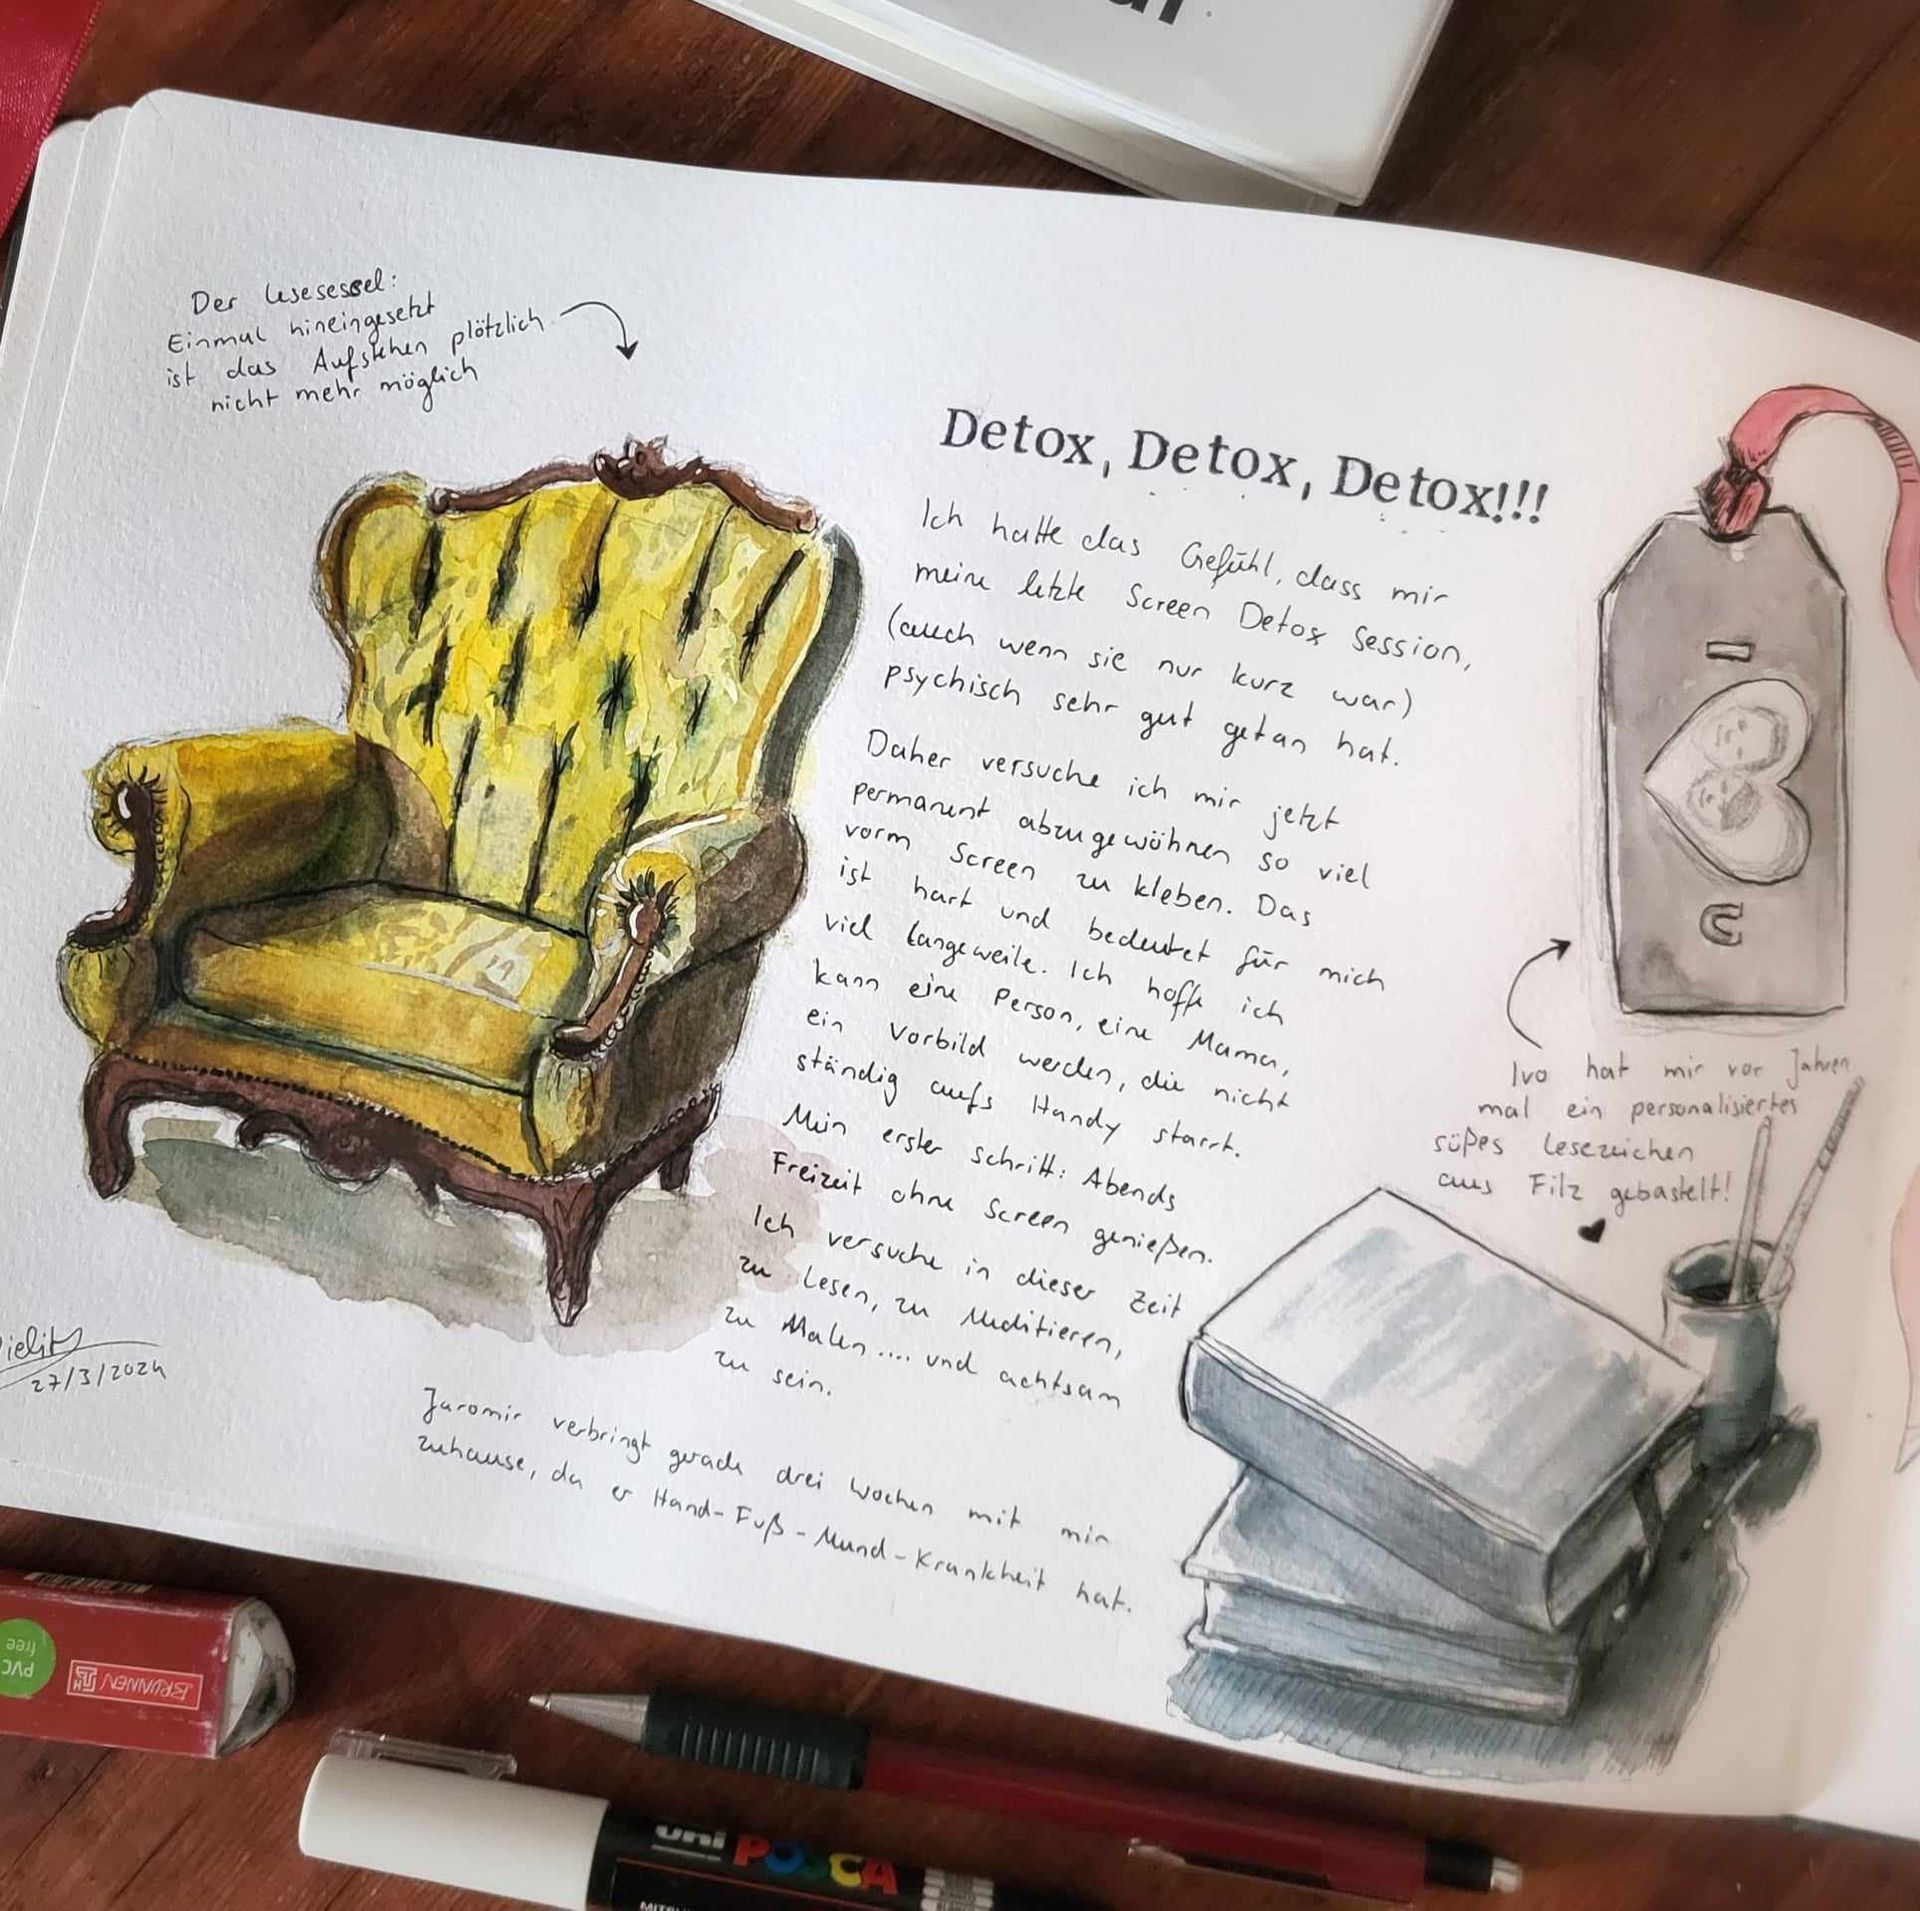 Der Lesesessel:
Einmal hineingesetzt
ist das Aufstehen plötzlich
nicht mehr möglich
Detox, Detox, Detox!!!
Ich hatte das Gefühl, dass mir
meine letzte Screen Detox Session,
(auch wenn sie nur kurz war)
psychisch sehr gut getan hat.
Daher versuche ich mir jetzt
permanent abzugewöhnen so viel
vorm Screen zu kleben. Das
ist hart und bedeutet für mich
viel Langeweile. Ich hoffe ich
kann eine Person, eine Mama,
ein Vorbild werden, die nicht
ständig aufs Handy starrt.
Mein erster Schritt: Abends
Freizeit ohne Screen genießen.
Ich versuche in dieser Zeit
zu Lesen, zu Meditieren,
zu Malen.... und achtsam
zu sein.
Jaromir verbringt gerade drei Wochen mit mir
zuhause, da er Hand-Fuß-Mund-Krankheit hat.
I
C
Ivo hat mir vor Jahren
mal ein personalisiertes
süßes Lesezeichen
aus Filz gebastelt!
27/3/2024
PVC
free
BRUNNEN
uni
POSCA